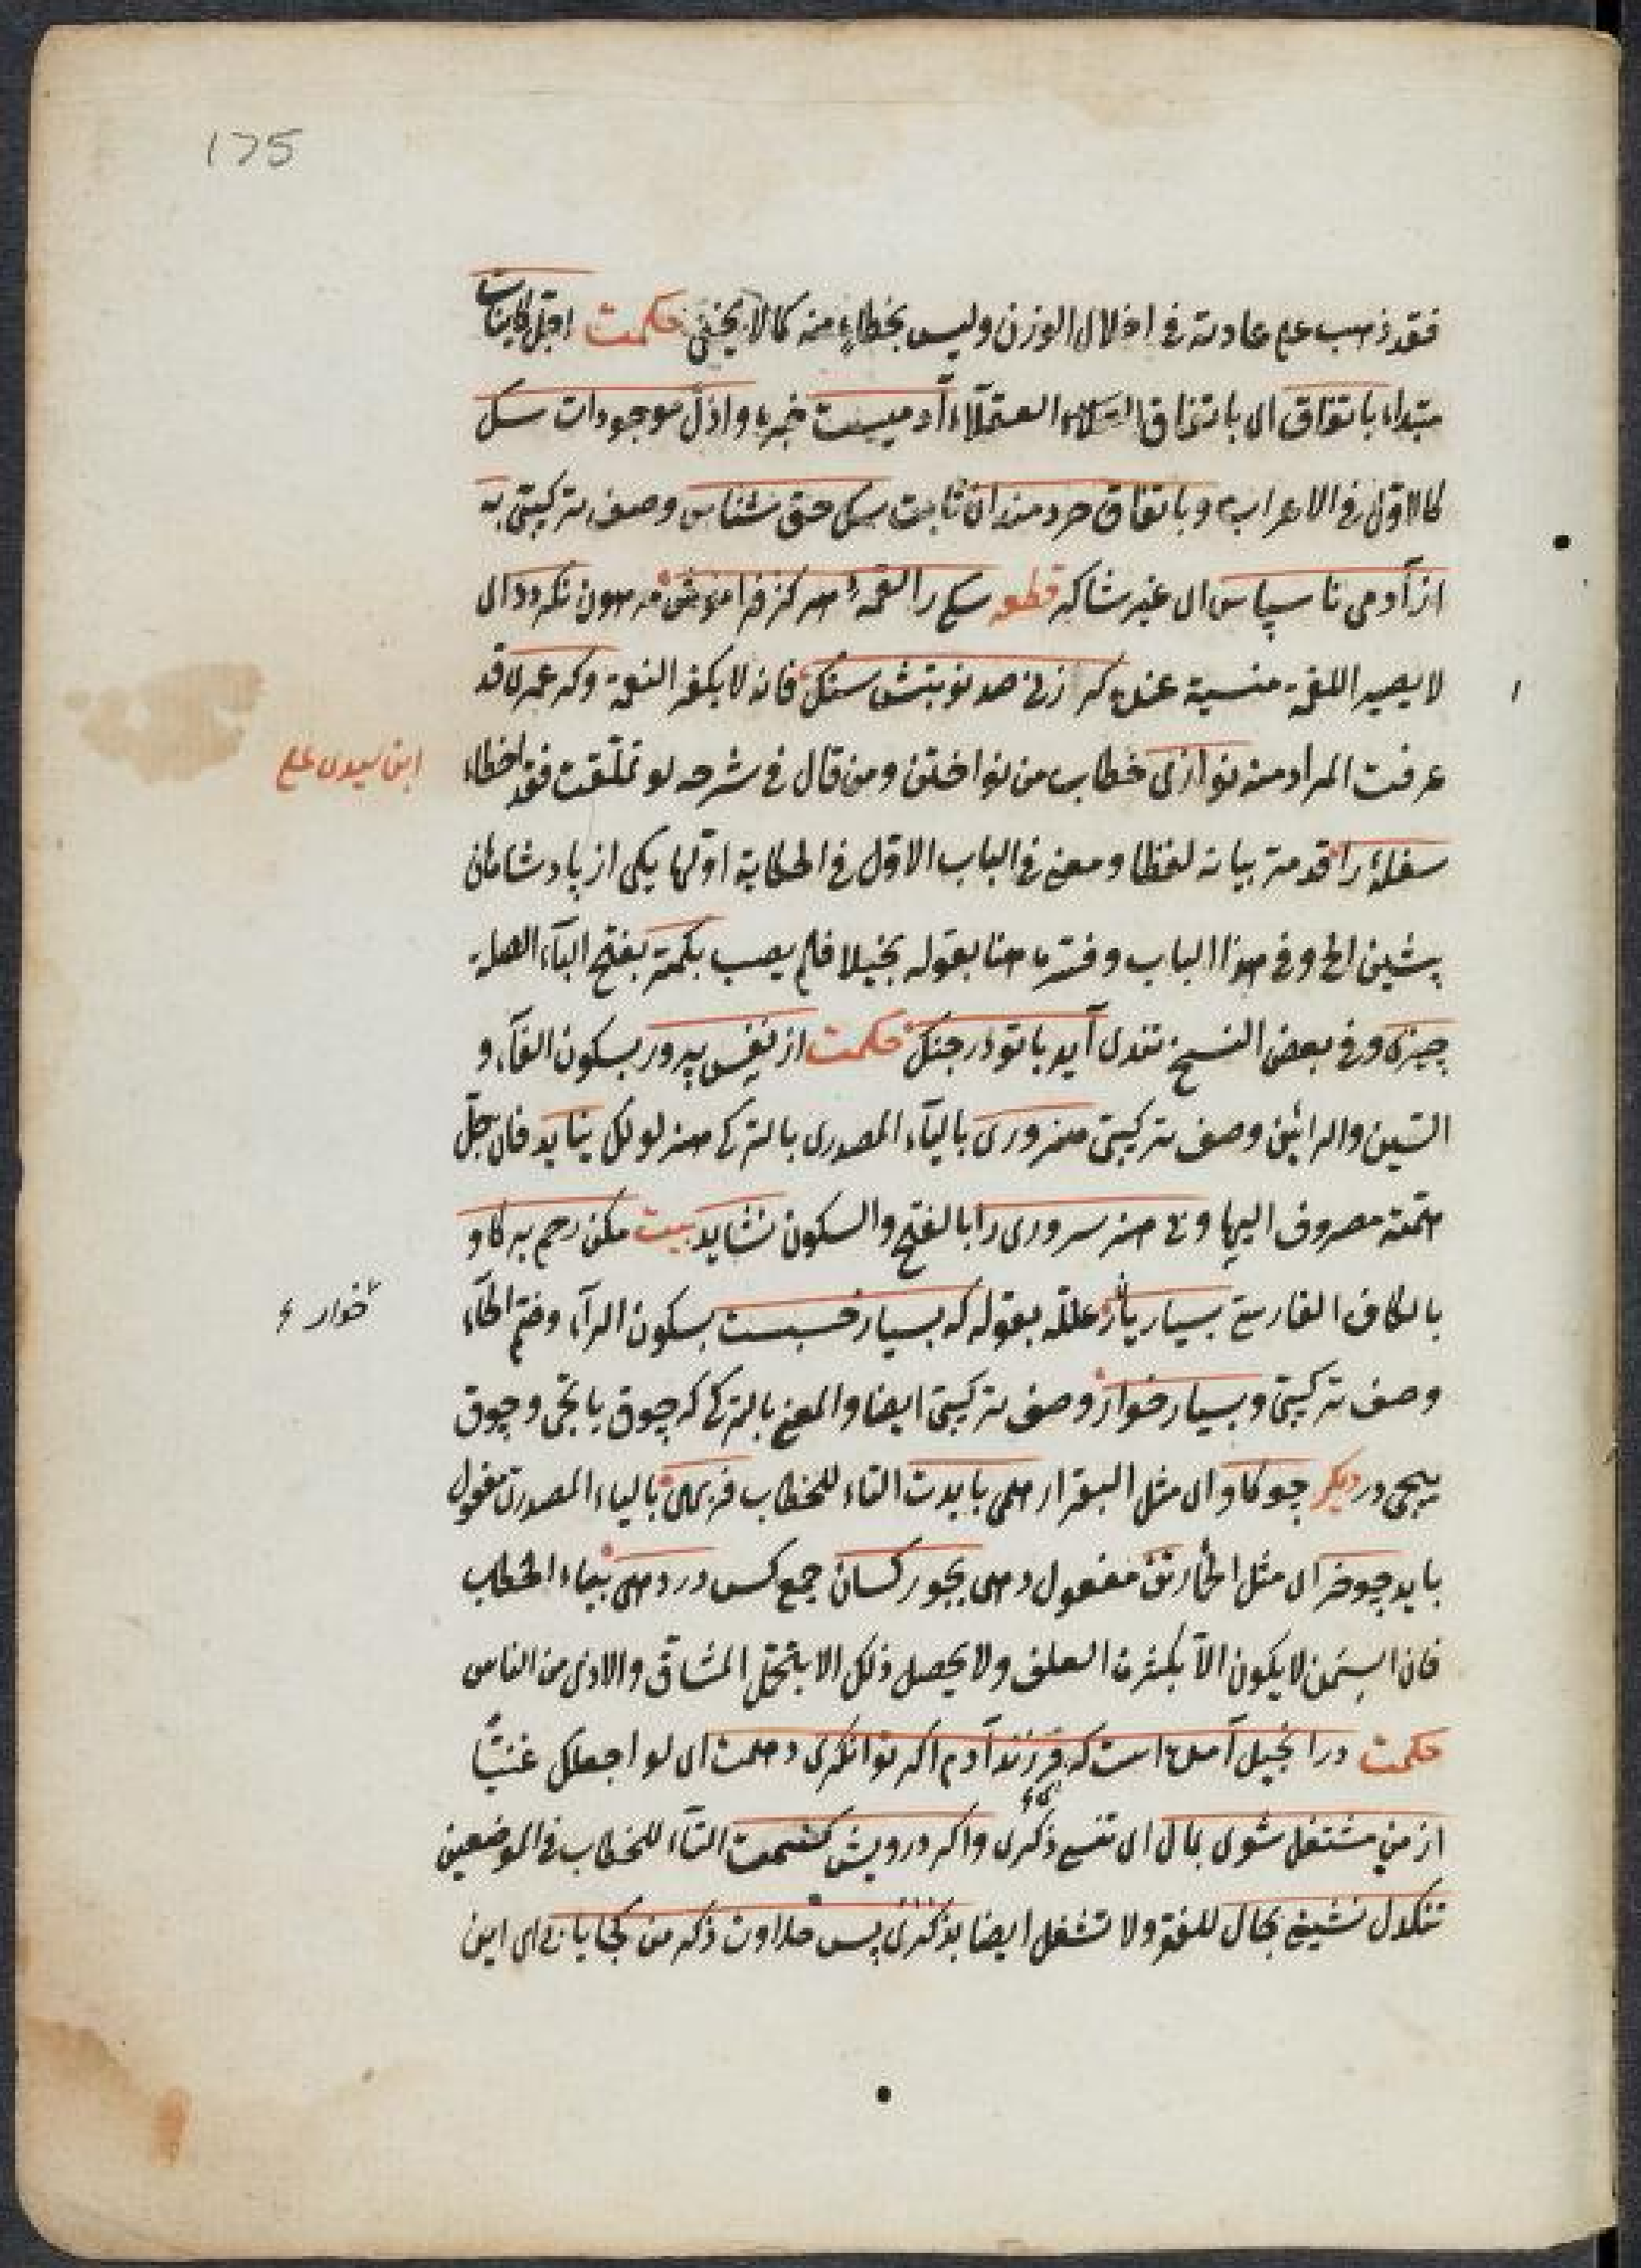 175
فقد ذهب على عادته فى اخلال الوزن وليس بخطاء منه كما لا يخفى حكمت اجل كاينات
مبتداء باتفاق اى باتفاق العقلاء آدميست خبره واذل موجودات سك
كالاول فى الاعراب وباتفاق خردمندان ثابت سك حق شناس وصف تركيبى به
از آدمى ناسپاس اى غير شاكر قطعه سكى را لقمۀ هركز فراموش نكردد اى
لا يصير اللقمة منسية عنده كر زنى صد نوبتش سنك فانه لا يكفر النعمة وكر عمرى قد
عرفت المراد منه نوازى خطاب من نواختن ومن قال فى شرحه لو تملّقت فقد اخطاء
ابن سيدى على
سفلۀ را قد مر بيانه لفظا ومعنى فى الباب الاول فى الحكاية اولها يكى از پادشاهان
پيشين الخ وفى هذا الباب وفسّر هنا بقوله بخيلا فلم يصب بكمتر بفتح الباء الصلة
چيزى وفى بعض النسخ تندى آيد با تو در جنك حكمت از نفس پرور بسكون الفاء و
السين والرائين وصف تركيبى هنرورى بالياء المصدرى بالتركى هنرلولك نيايد فان جلّ
همته مصروف اليها وبى هنر سرورى را بالفتح والسكون نشايد بيت مكن رحم بر كاو
بالكاف الفارسى بسيار بار علله بقوله كه بسيار خسبست بسكون الراء وضم الخاء
خوار
وصف تركيبى وبسيار خوار وصف تركيبى ايضا والمعنى بالتركى كه چوق ياتجى وچوق
ييجى در ديكر چو كاو اى مثل البقر ار همى بايدت التاء للخطاب فربهى بالياء المصدرى مفعول
بايد چو خر اى مثل الحمار تن مفعول دهى بجور كسان جمع كس در دهى بياء الخطاب
فان السمن لا يكون الا بكثرة العلف ولا يحصل ذلك الا بتحمل المشاق والاذى من الناس
حكمت در انجيل آمده است كه فرزند آدم اكر توانكرى دهمت اى لو اجعلك غنيّا
از من مشتغل شوى بمال اى تنسى ذكرى واكر درويش كنمت التاء للخطاب فى الموضعين
تنكدل نشينى بحال للفقر ولا تشغل ايضا بذكرى پس حلاوت ذكر من كجا يابى اى اين